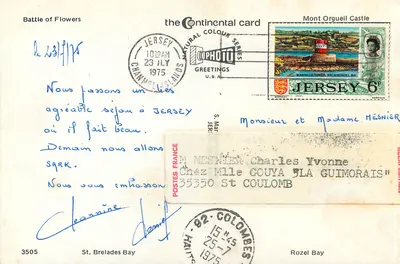 Battle of Flowers
the Continental card
Mont Orgueil Castle
le 23/7/75
JERSEY
10:15AM
23 JLY
1975
CHANNEL ISLANDS
NATURAL COLOUR SERIES
PHOTO
GREETINGS
U.S.A.
JERSEY 6P
Nous passons un très
agréable séjour à JERSEY
où il fait beau.
Demain nous allons
SARK.
Nous vous embrassons
Monsieur et Madame MESNIER
POSTES FRANCE
M MESNIER Charles Yvonne
Chez Mlle GOUYA "LA GUIMORAIS"
35350 St COULOMB
92 - COLOMBES
25-7
1975
3505
St. Brelades Bay
Rozel Bay